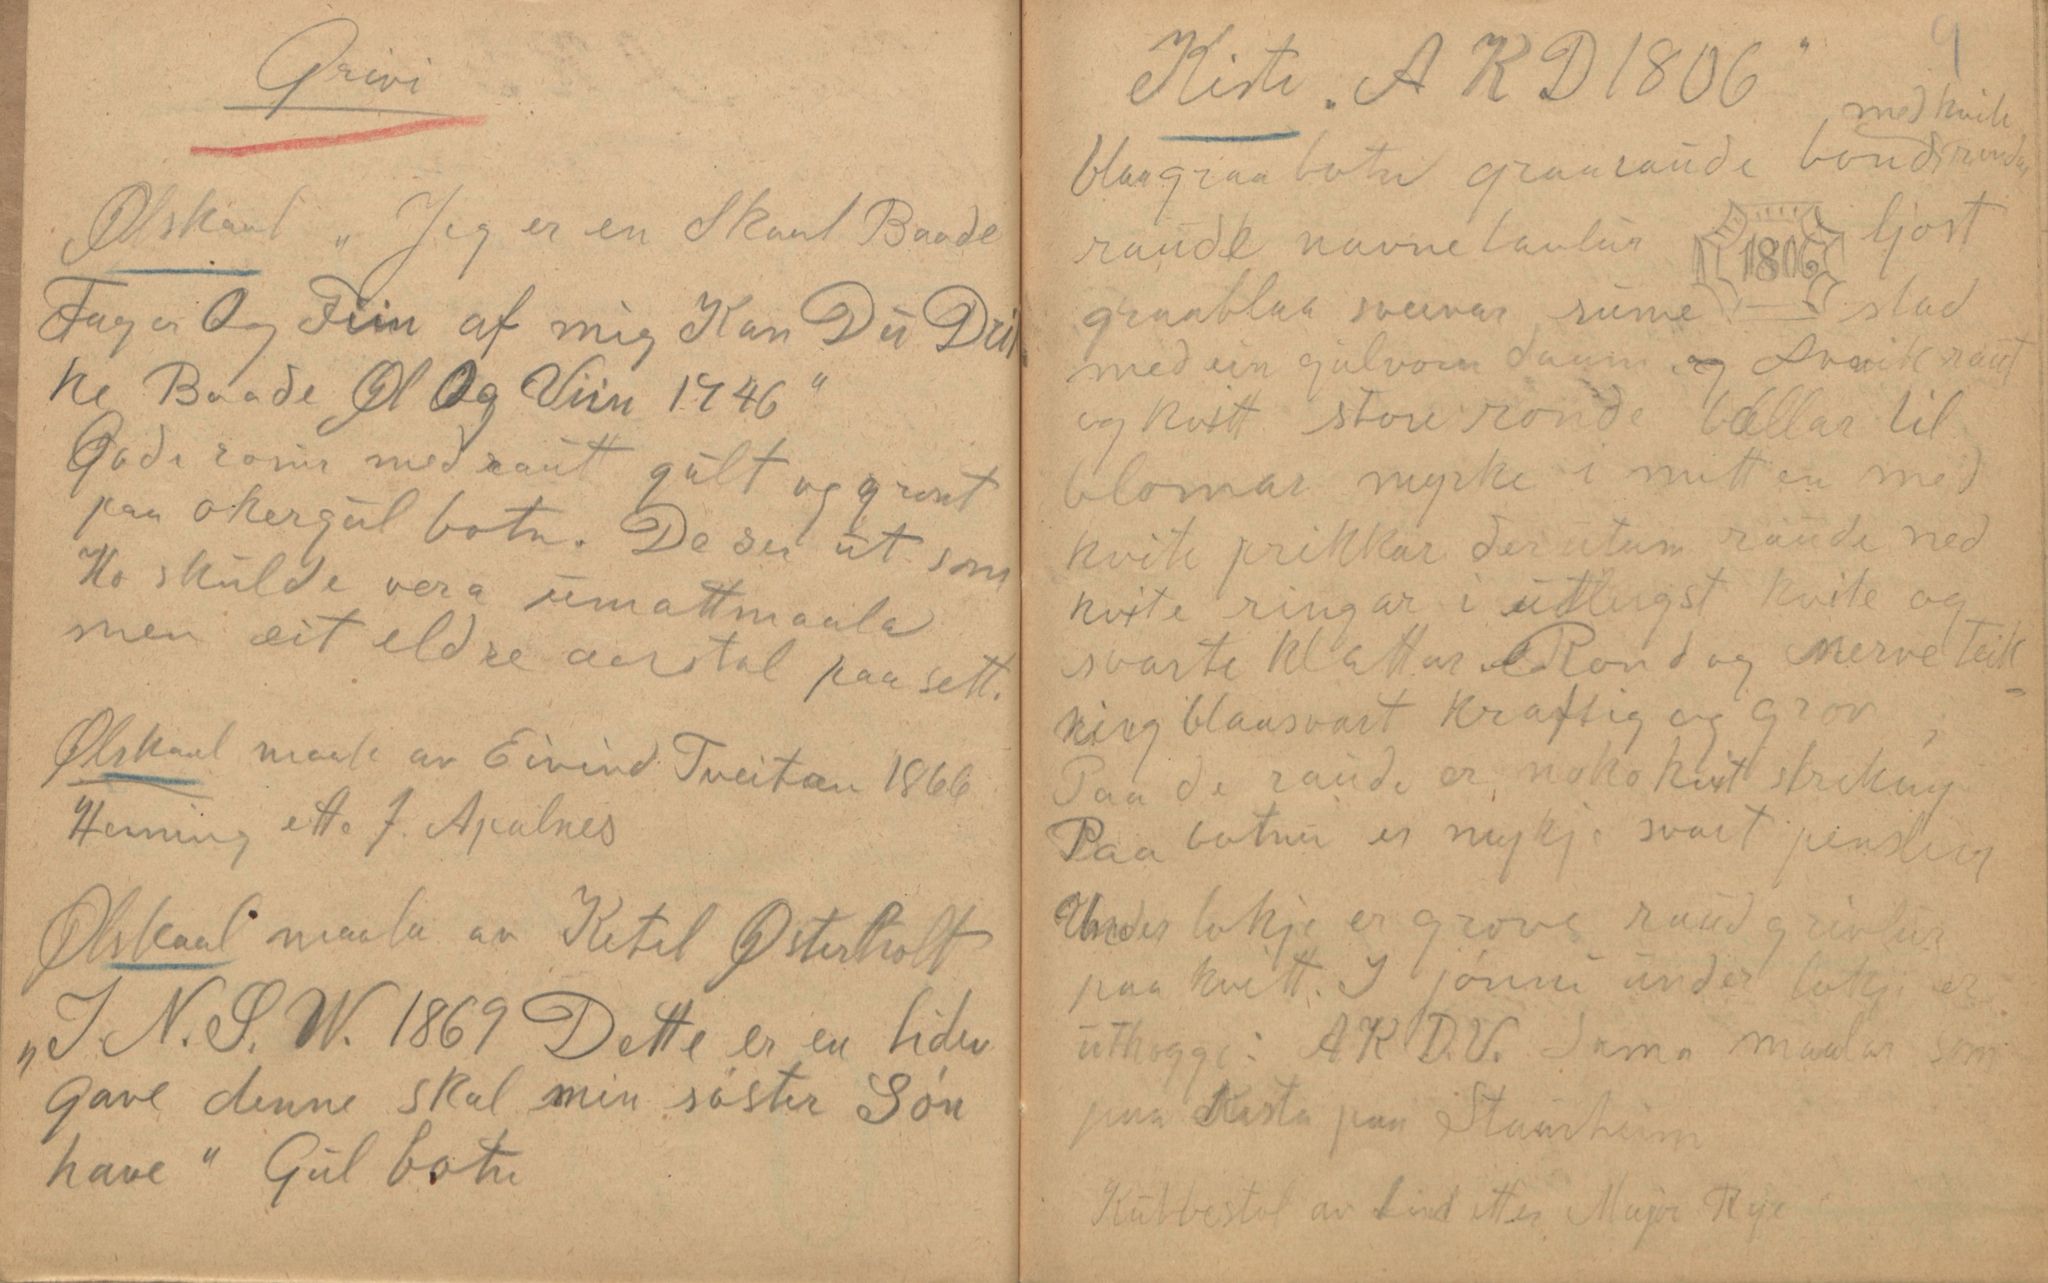 Grivi
Ølskaal „Jeg er en Skaal Baade
Fager Og Fiin af mig Kan Dü Drin
ke Baade Øl Og Viin 1746"
Gode rosur med raütt gült og grönt
paa okergül botn. De ser üt som
Ho skülde vera ümattmaala
men eit eldre aarstal paasett.
Ølskaal maala av Eivind Tveitan 1866
Henning ette J. Apalnes
Ølskaal maala av Ketel Østerholt
„I. N. S. W. 1869 Dette er en liden
gave denne skal min söster Sön
have" Gül botn
9
Kiste „A K D 1806"
med kvite
blaagraa botn graaraude bond rondar
raude navnetavlur 1806 ljost
graablaa sveivar rüme stad
med ein gülvorn daum og kraut
og kvitt store ronde ballar til
blomar myrke i mitten med
kvite prikkar derütum raude med
kvite ringar i ütlegst kvite og
svarte klattar Rond og nerve teik-
ning blaasvart kraftig og grov
Paa de raude er noko kvit streking
Paa botnü er mykje svart pensling
Under lokje er grove raud grivlür
paa kvitt. I jönnü ünder lokje er
üthogge: A K D. V. Sama maalar som
paa Kista paa Staurheim
Kübbestol av Lind etter Major Rye